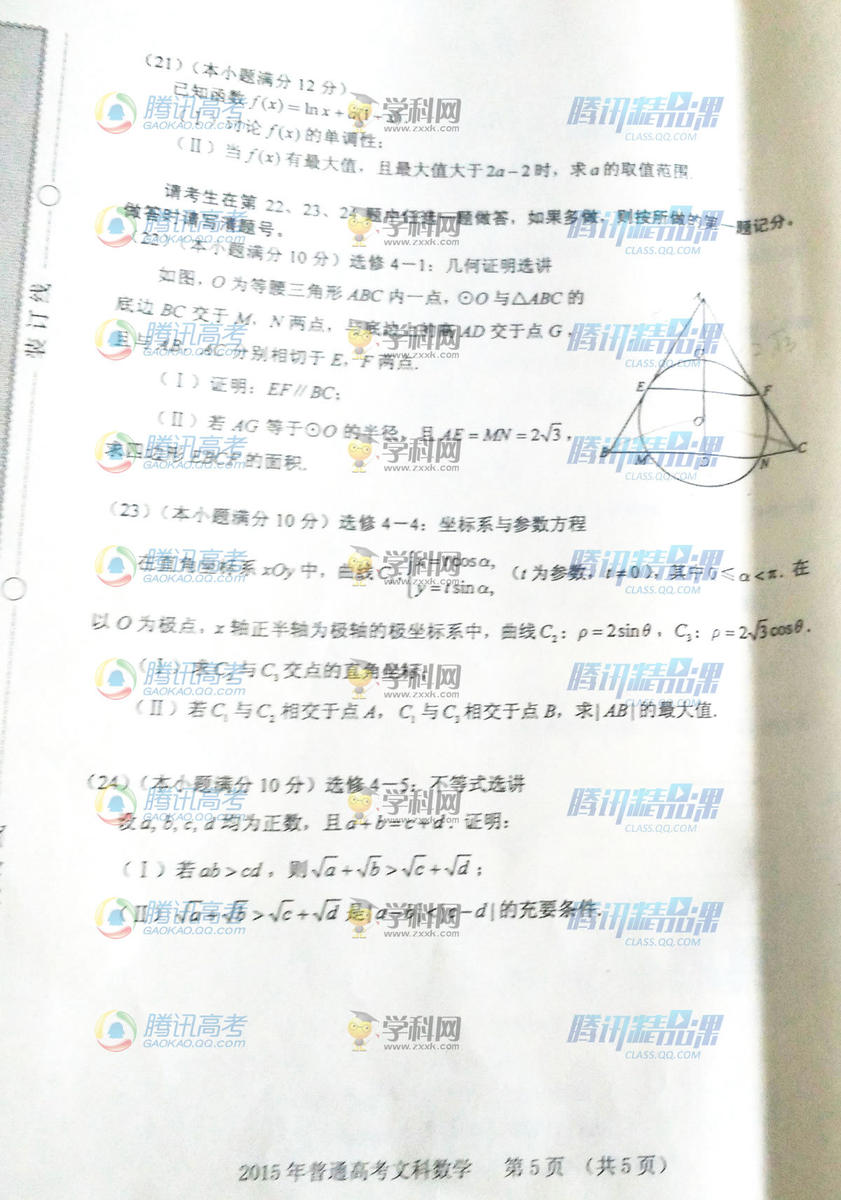 (21)(本小题满分 12 分)
已知函数 f(x)=ln x+a(1-x).
讨论 f(x) 的单调性;
(Ⅱ) 当 f(x) 有最大值, 且最大值大于 2a-2 时, 求 a 的取值范围.
请考生在第 22、23、24 题中任选一题做答, 如果多做, 则按所做的第一题记分。
做答时请写清题号。
(22)(本小题满分 10 分) 选修 4-1: 几何证明选讲
如图, O 为等腰三角形 ABC 内一点, ⊙O 与△ABC 的
底边 BC 交于 M、N 两点, 与底边上的高 AD 交于点 G,
且与 AB、AC 分别相切于 E、F 两点.
(Ⅰ) 证明: EF∥BC;
(Ⅱ) 若 AG 等于⊙O 的半径, 且 AE=MN=2√3,
求四边形 EBCF 的面积.
A
G
E
F
O
B
M
D
N
C
2√3
(23)(本小题满分 10 分) 选修 4-4: 坐标系与参数方程
在直角坐标系 xOy 中, 曲线 C₁: {x=t cosα, y=t sinα, (t 为参数, t≠0), 其中 0≤α<π. 在
以 O 为极点, x 轴正半轴为极轴的极坐标系中, 曲线 C₂: ρ=2sinθ, C₃: ρ=2√3cosθ.
(Ⅰ) 求 C₂ 与 C₃ 交点的直角坐标;
(Ⅱ) 若 C₁ 与 C₂ 相交于点 A, C₁ 与 C₃ 相交于点 B, 求 |AB| 的最大值.
(24)(本小题满分 10 分) 选修 4-5: 不等式选讲
设 a, b, c, d 均为正数, 且 a+b=c+d. 证明:
(Ⅰ) 若 ab>cd, 则 √a+√b>√c+√d;
(Ⅱ) √a+√b>√c+√d 是 |a-b|<|c-d| 的充要条件.
2015 年普通高考文科数学 第 5 页 (共 5 页)
装订线
腾讯高考
GAOKAO.QQ.com
学科网
www.zxxk.com
腾讯精品课
CLASS.QQ.COM